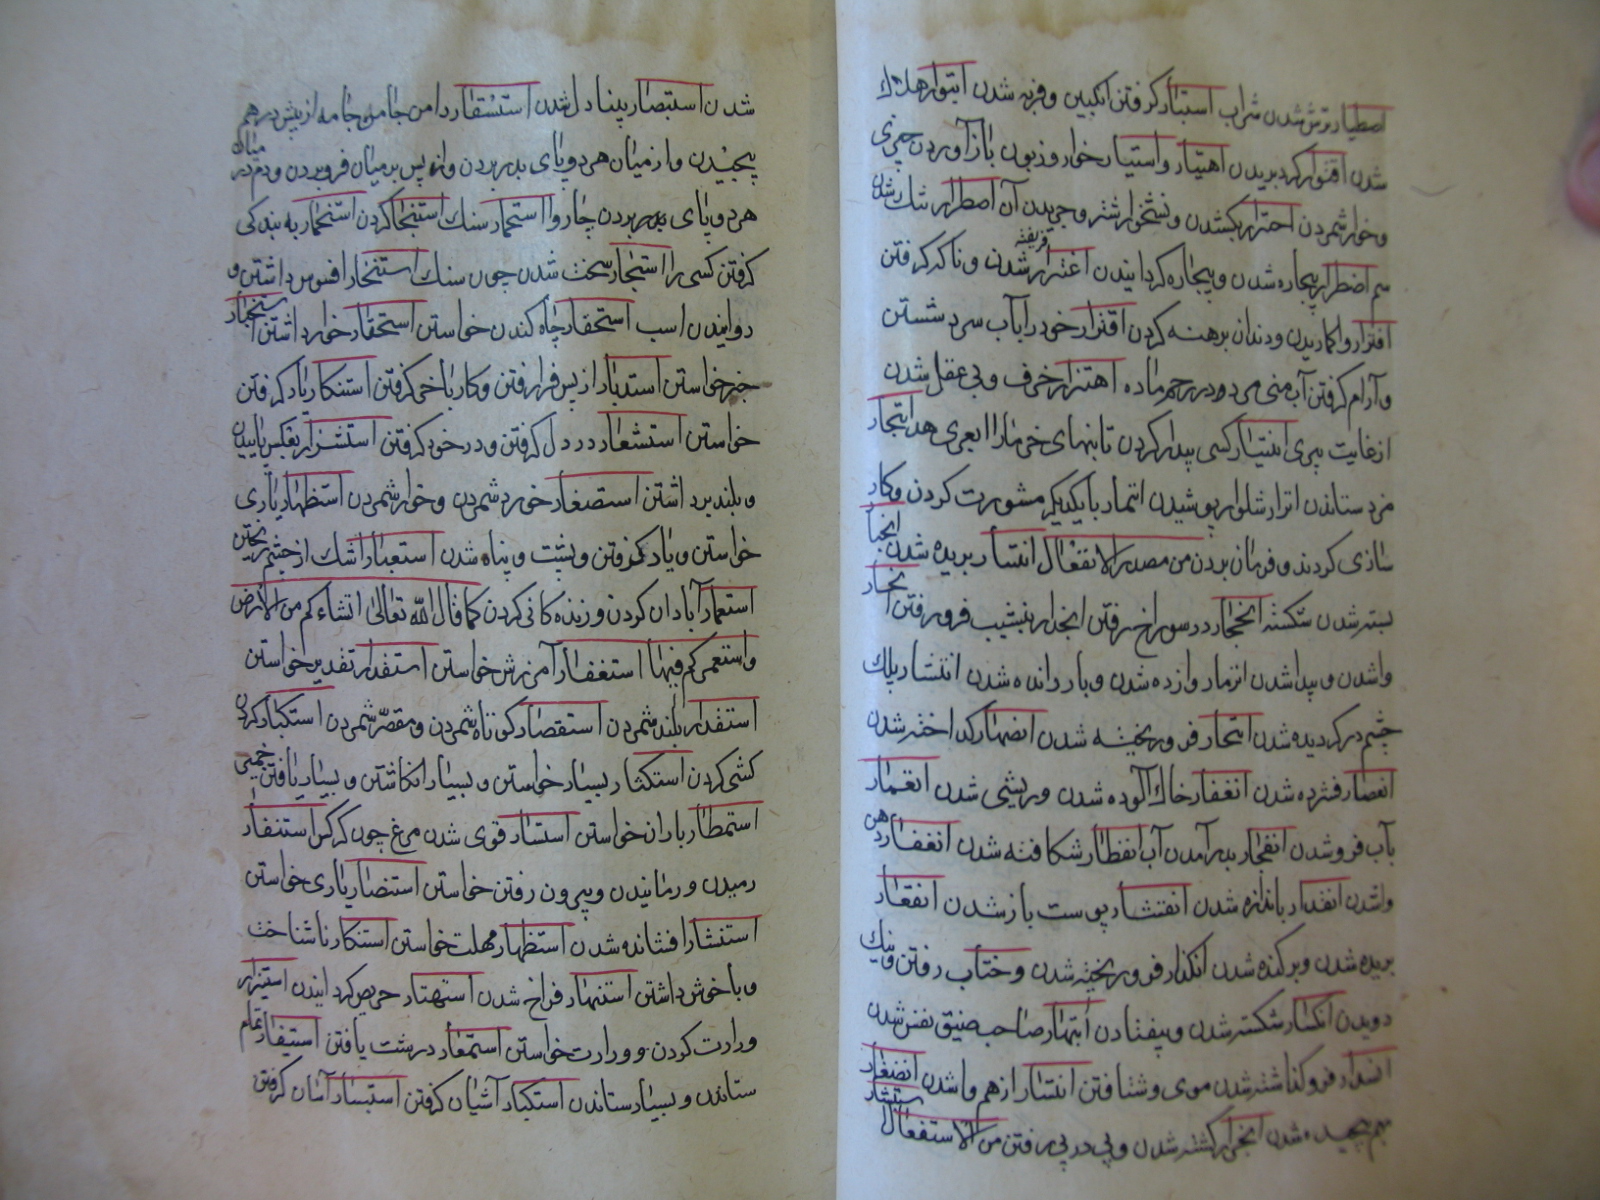 اصطبار ترش شدن شراب اشتیار گرفتن انگبین و فربه شدن ابتوار هلاک
شدن اقتوار گرد بریدن اهتیار و استیار خوار و زبون باز آوردن چیزی
و خوار شمردن اجترار بکشدن و نشخوار شتر و جریدن آن اصطرار تنک شدن
سم اضطرار بیچاره شدن و بیچاره گردانیدن اغترار فریفته شدن و ناگه گرفتن
افترار واگماریدن و دندان برهنه کردن اقترار خود را بآب سرد شستن
و آرام گرفتن آب منی مرد در رحم ماده اهتزار خرف و بی عقل شدن
از غایت پیری ابتیار کسی پیدا کردن تا بنهای خرما را بعری دهد ایتجار
مزد ستاندن اتزار شلوار پوشیدن ائتمار با یکدیگر مشورت کردن و کار
سازی کردند و فرمان بردن من مصدر الانفعال انبتار بریده شدن انجبار
بسته شدن شکسته انجحار در سوراخ رفتن انحدار بنشیب فرو رفتن انحسار
واشدن و پیدا شدن انزجار وازده شدن و باز رانده شدن انتشار پلک
چشم در گردیده شدن انحار فرو ریخته شدن انصهار گداخته شدن
انعصار فشرده شدن انعفار خاک آلوده شدن و ریشی شدن انغمار
بآب فرو شدن انفجار بدر آمدن آب انفطار شکافته شدن انفغار دهن
واشدن انقدار باندازه شدن انقشار پوست باز شدن انقعار
بریده شدن و برکنده شدن انکدار فرو ریخته شدن و شتاب رفتن و نیک
دویدن انکسار شکسته شدن و بیفتادن انبهار صاحب ضیق نفس شدن
انسدار فرو گذاشته شدن موی و شتافتن انتشار از هم واشدن انضفار
بهم پیچیده شدن انجرار کشته شدن و پی در پی رفتن من الاستفعال استبشار
شدن استبصار بینا دل شدن استثفار دامن جامه و جامه از پیش در هم
پیچیدن و از میان هر دو پای بدر بردن و از پس بر میان فرو بردن و دم در میان
هر دو پای بدر بردن چاروا استجمار سنک استنجا کردن استخمار به بندگی
گرفتن کسی را استحجار سخت شدن چون سنک استسخار افسوس داشتن و
دوانیدن اسب استحفار چاه کندن خواستن استحقار خوار داشتن استخبار
خبر خواستن استدبار از پس فرا رفتن و کار باخر گرفتن استذکار یاد گرفتن
خواستن استشعار در دل گرفتن و در خود گرفتن استشزار بعکس تابیدن
و بلند برداشتن استصغار خورد شمردن و خوار شمردن استظهار یاری
خواستن و یاد گرفتن و پشت و پناه شدن استعبار اشک از چشم ریختن
استعمار آبادان کردن و زنده کانی کردن کما قال الله تعالی انشاءکم من الارض
واستعمرکم فیها استغفار آمرزش خواستن استقدار تقدیر خواستن
استقدار بلند شمردن استقصار کوتاه شمردن و مقصر شمردن استکبار گردن
کشی کردن استکثار بسیار خواستن و بسیار انگاشتن و بسیار یافتن چیزی
استمطار باران خواستن استنسار قوی شدن مرغ چون کرکس استنفار
رمیدن و رمانیدن و بیرون رفتن خواستن استنصار یاری خواستن
استنثار افشانده شدن استنظار مهلت خواستن استنکار ناشناخت
و ناخوش داشتن استنهار فراخ شدن استهتار حریص گردانیدن استیزار
وزارت کردن و وزارت خواستن استمعار درشت یافتن استیفار تمام
ستاندن و بسیار ستاندن استیکار آشیان گرفتن استیسار آسان گرفتن